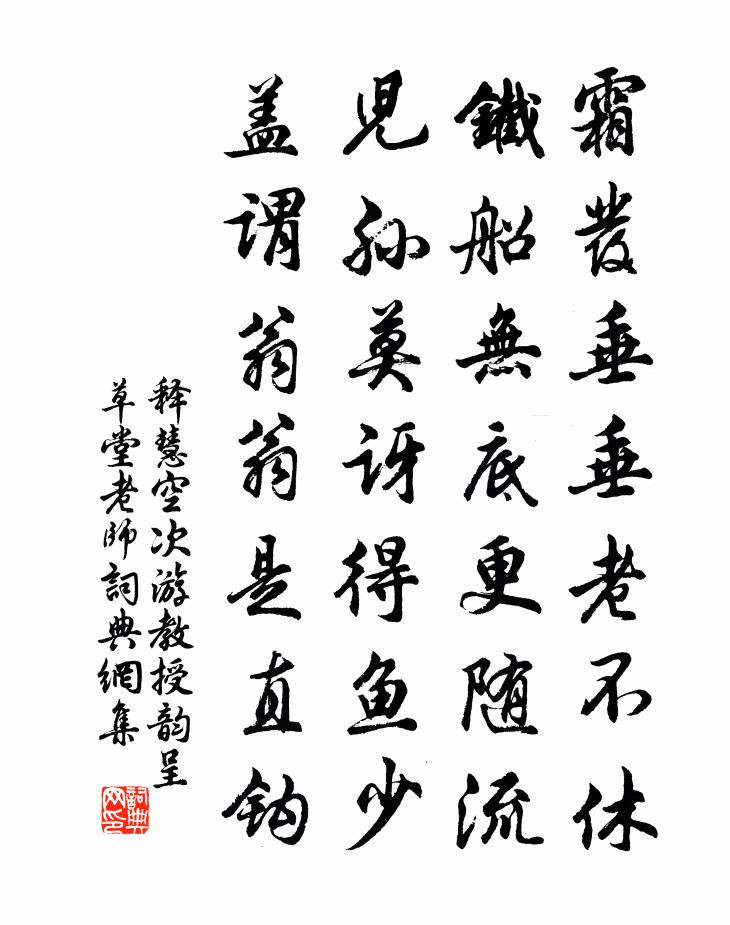 霜發垂垂老不休
鐵船無底更随流
児孫莫訝得鱼少
盖谓翁翁是直钩
释慧空次游教授韵呈
草堂老师詞典網集
詞典网印